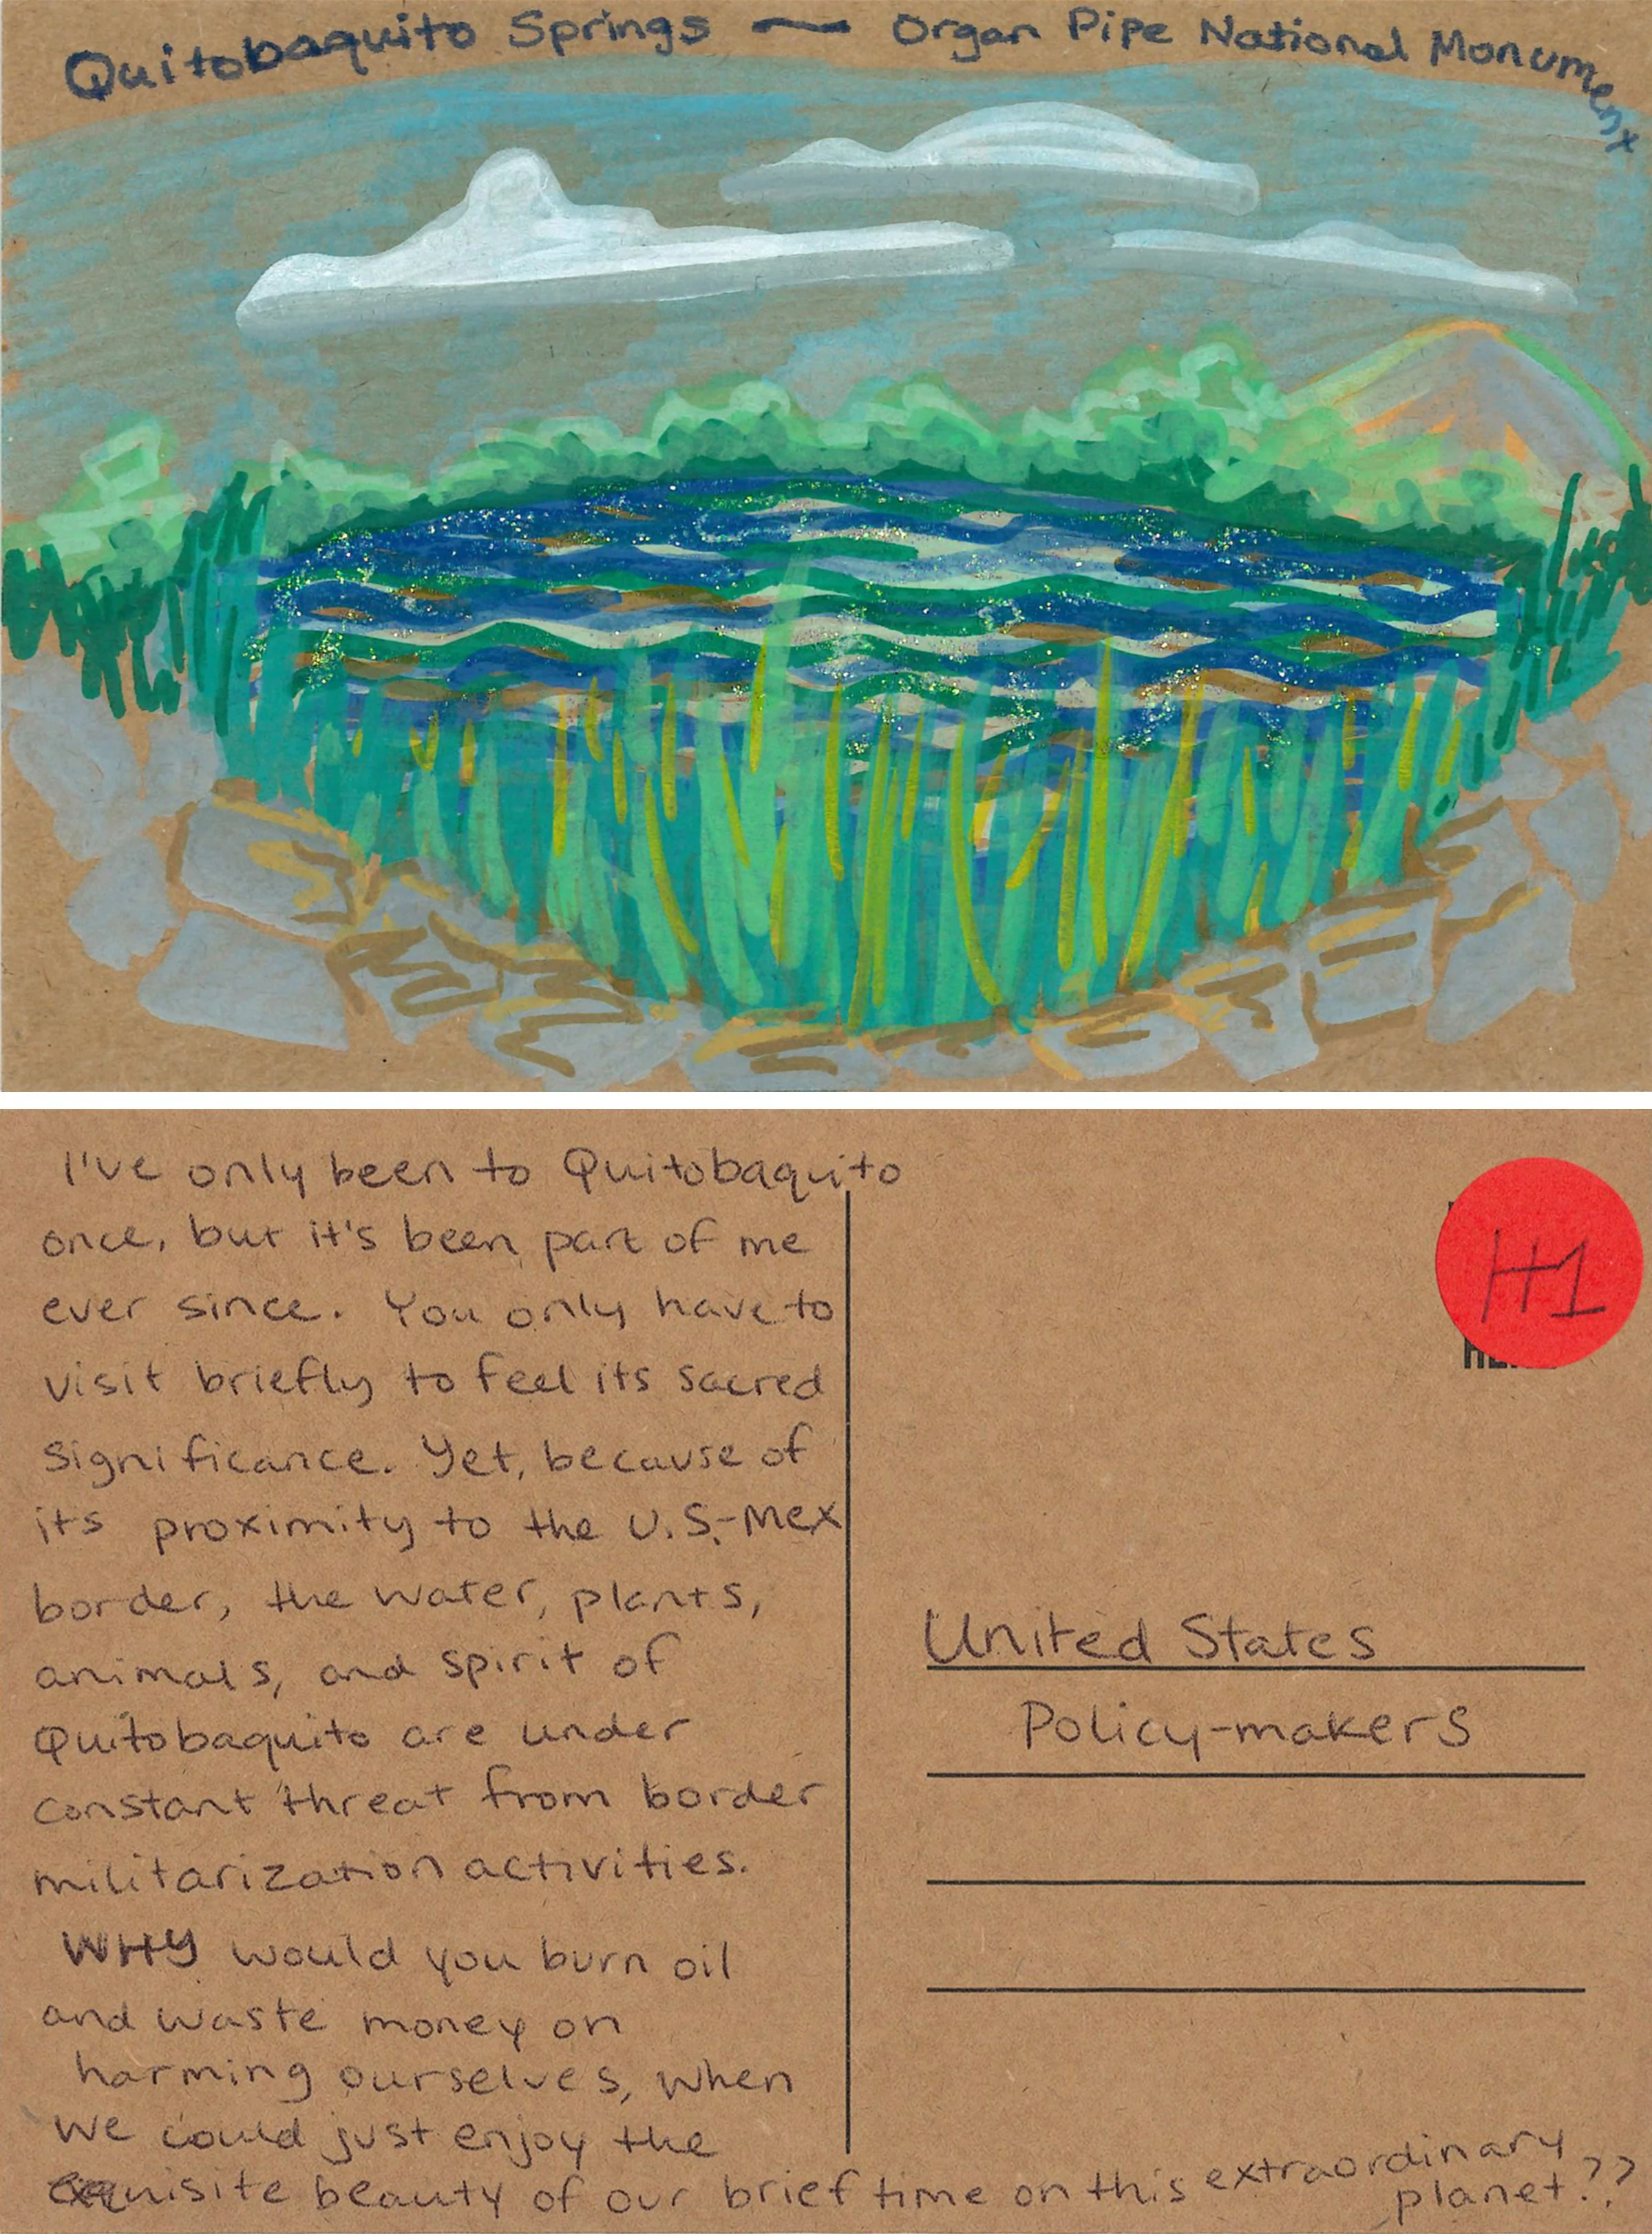 Quitobaquito Springs — Organ Pipe National Monument
I've only been to Quitobaquito
once, but it's been part of me
ever since. You only have to
visit briefly to feel its sacred
significance. Yet, because of
its proximity to the U.S.-Mex
border, the water, plants,
animals, and spirit of
Quitobaquito are under
constant threat from border
militarization activities.
WHY would you burn oil
and waste money on
harming ourselves, when
we could just enjoy the
exquisite beauty of our brief time on this extraordinary
planet??
H1
United States
Policy-makers